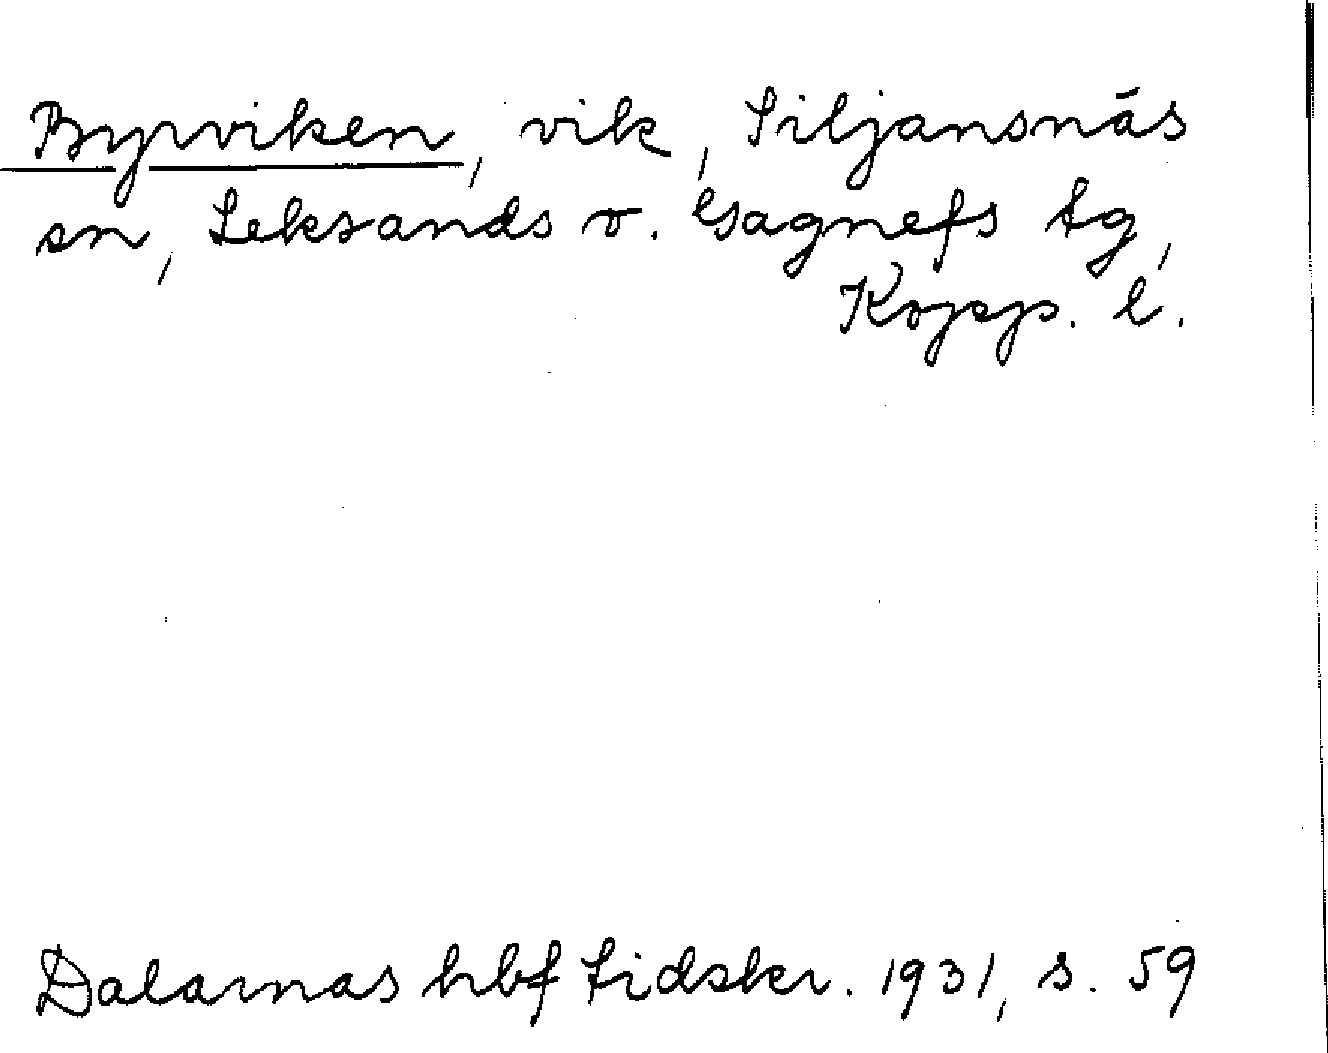 Byrviken, vik, Siljansnäs
sn, Leksands o. Gagnefs tg,
Kopp. l.
Dalarnas hbf tidskr. 1931, s. 59